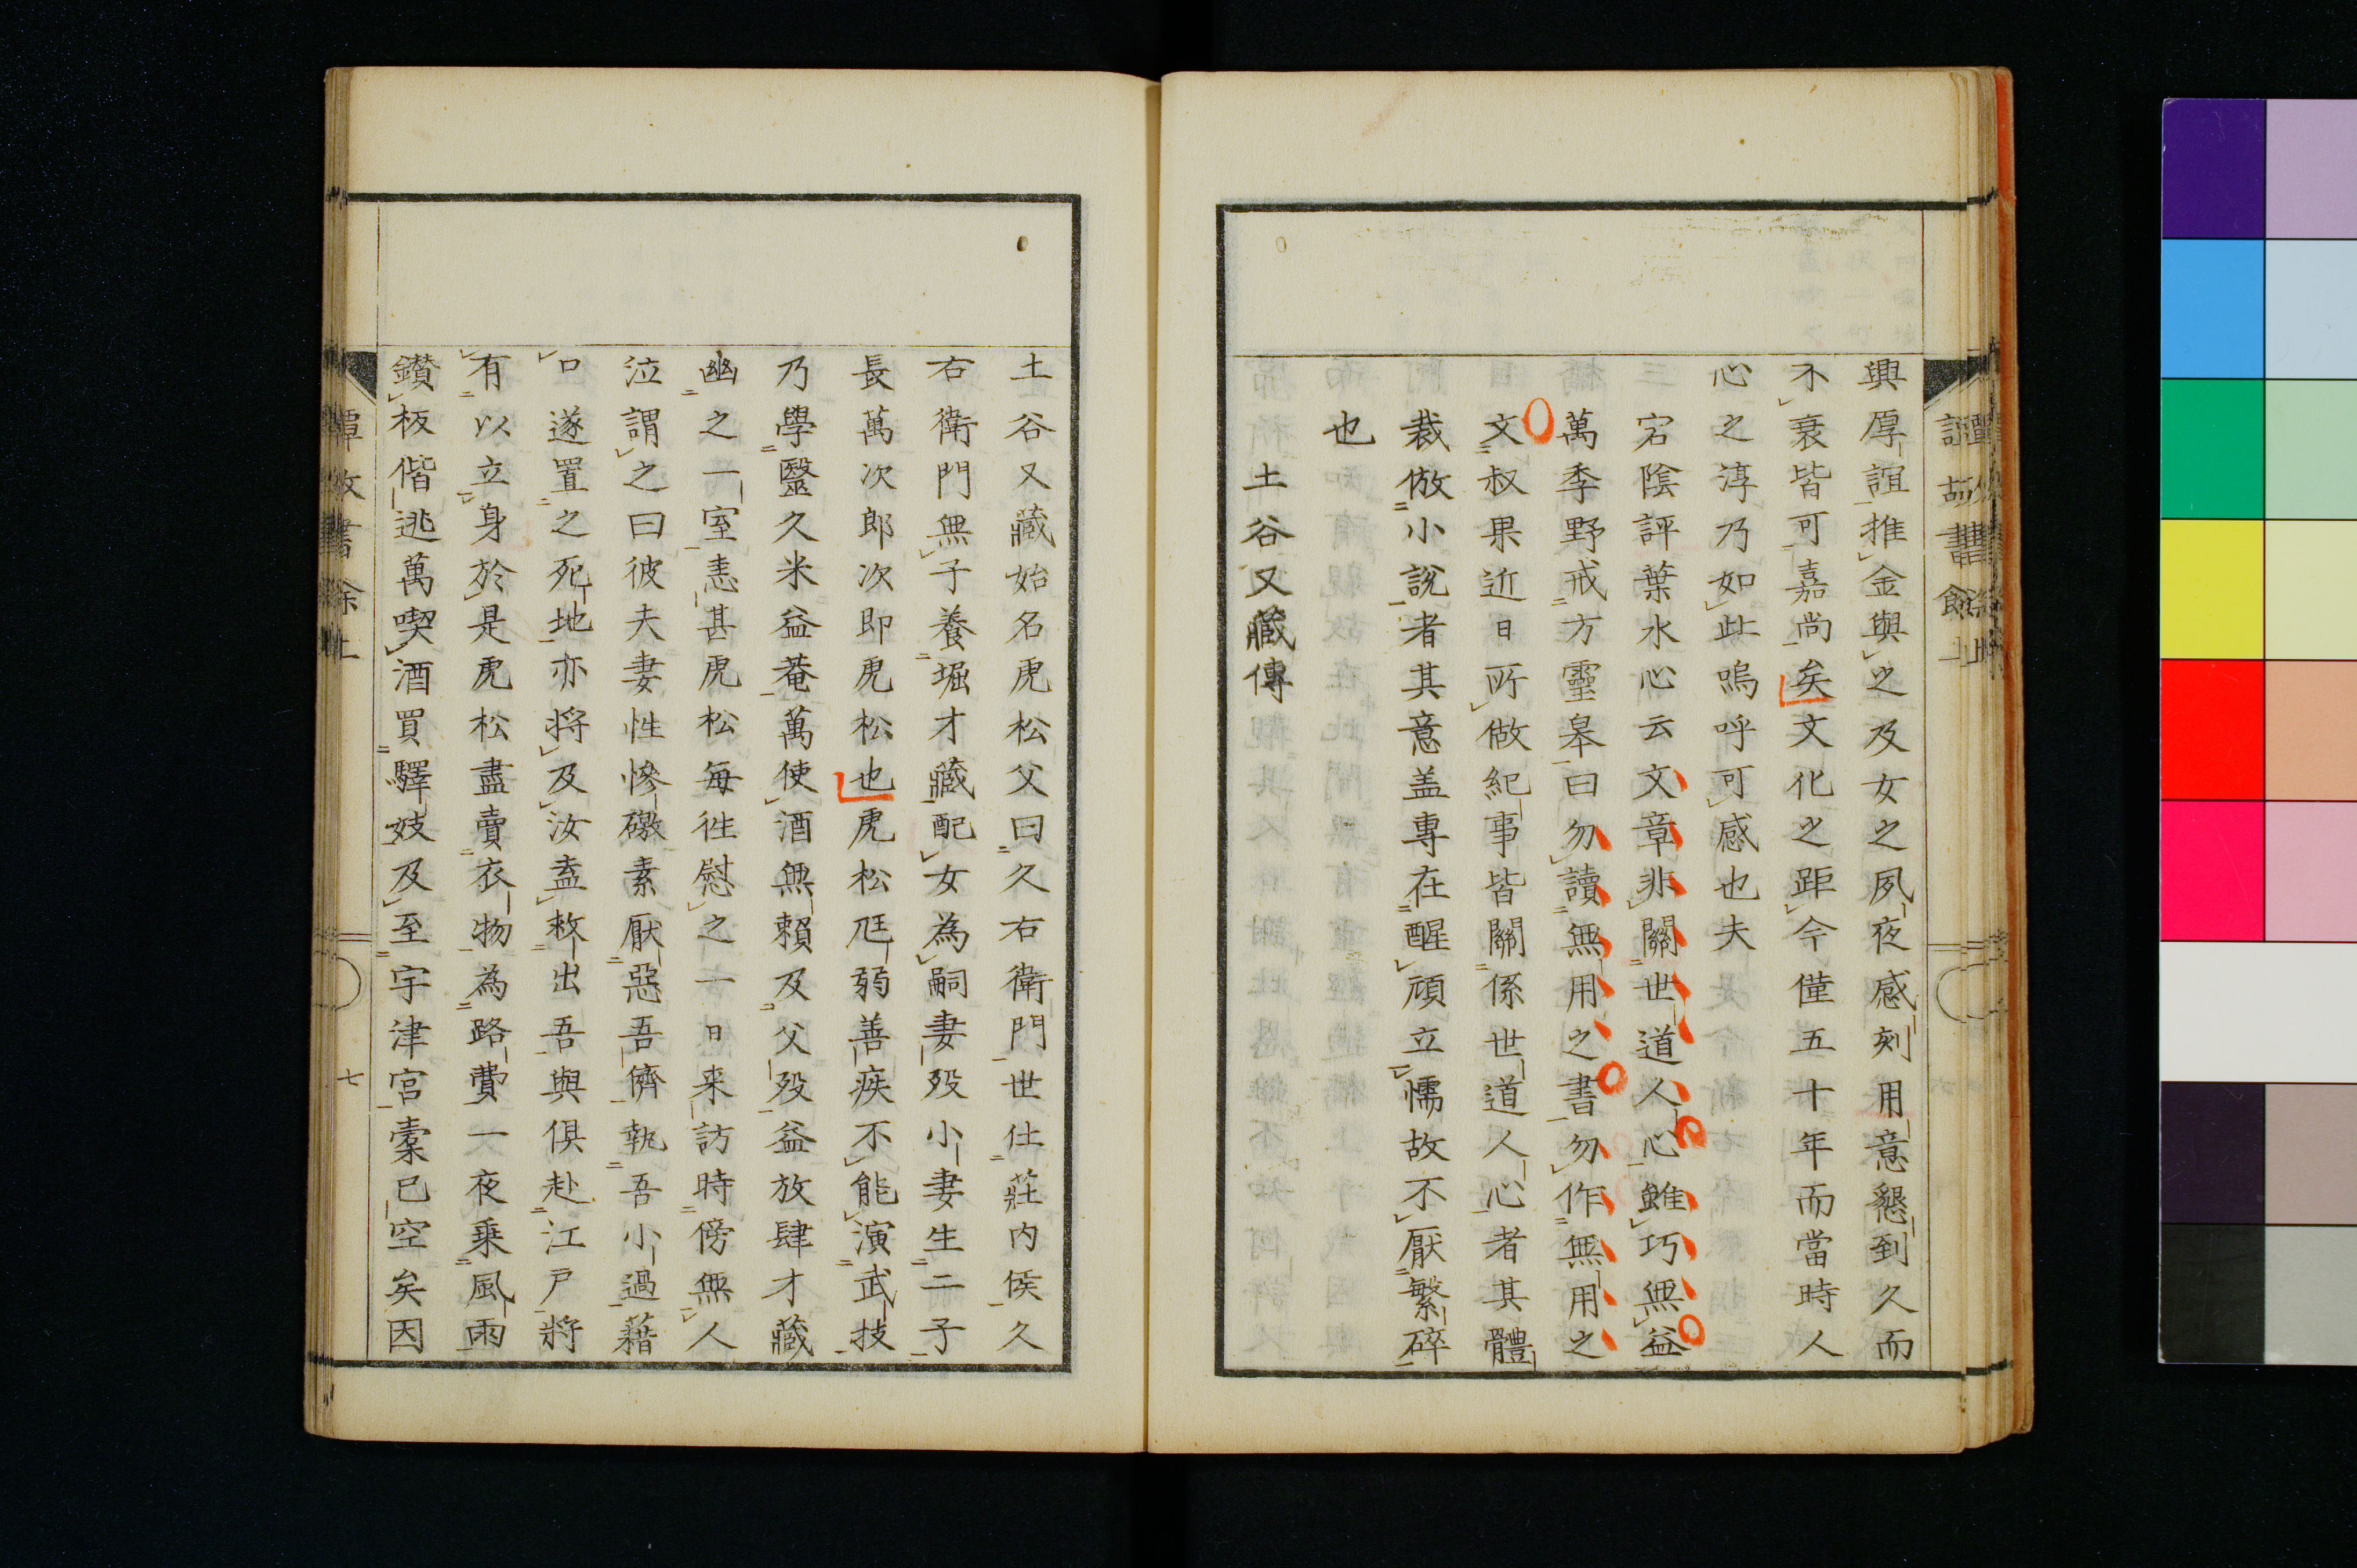 興厚誼推金與之及女之夙夜感刻用意懇到久而
不衰皆可嘉尚矣文化之距今僅五十年而當時人
心之淳乃如此嗚呼可感也夫
宕陰評葉水心云文章非關世道人心雖巧無益
萬季野戒方靈皋曰勿讀無用之書勿作無用之
文叔果近日所做紀事皆關係世道人心者其體
裁倣小說者其意盖專在醒頑立懦故不厭繁碎
也
土谷又藏傳
土谷又藏始名虎松父曰久右衛門世仕莊内侯久
右衛門無子養堀才藏配女為嗣妻歿小妻生二子
長萬次郎次即虎松也虎松尫弱善疾不能演武技
乃學醫久米益菴萬使酒無賴及父歿益放肆才藏
幽之一室恚甚虎松每徃慰之一日来訪時傍無人
泣謂之曰彼夫妻性慘礉素厭惡吾儕執吾小過藉
口遂置之死地亦将及汝盍救出吾與俱赴江戸將
有以立身於是虎松盡賣衣物為路費一夜乗風雨
鑚板偕逃萬喫酒買驛妓及至宇津宮槖已空矣因
七